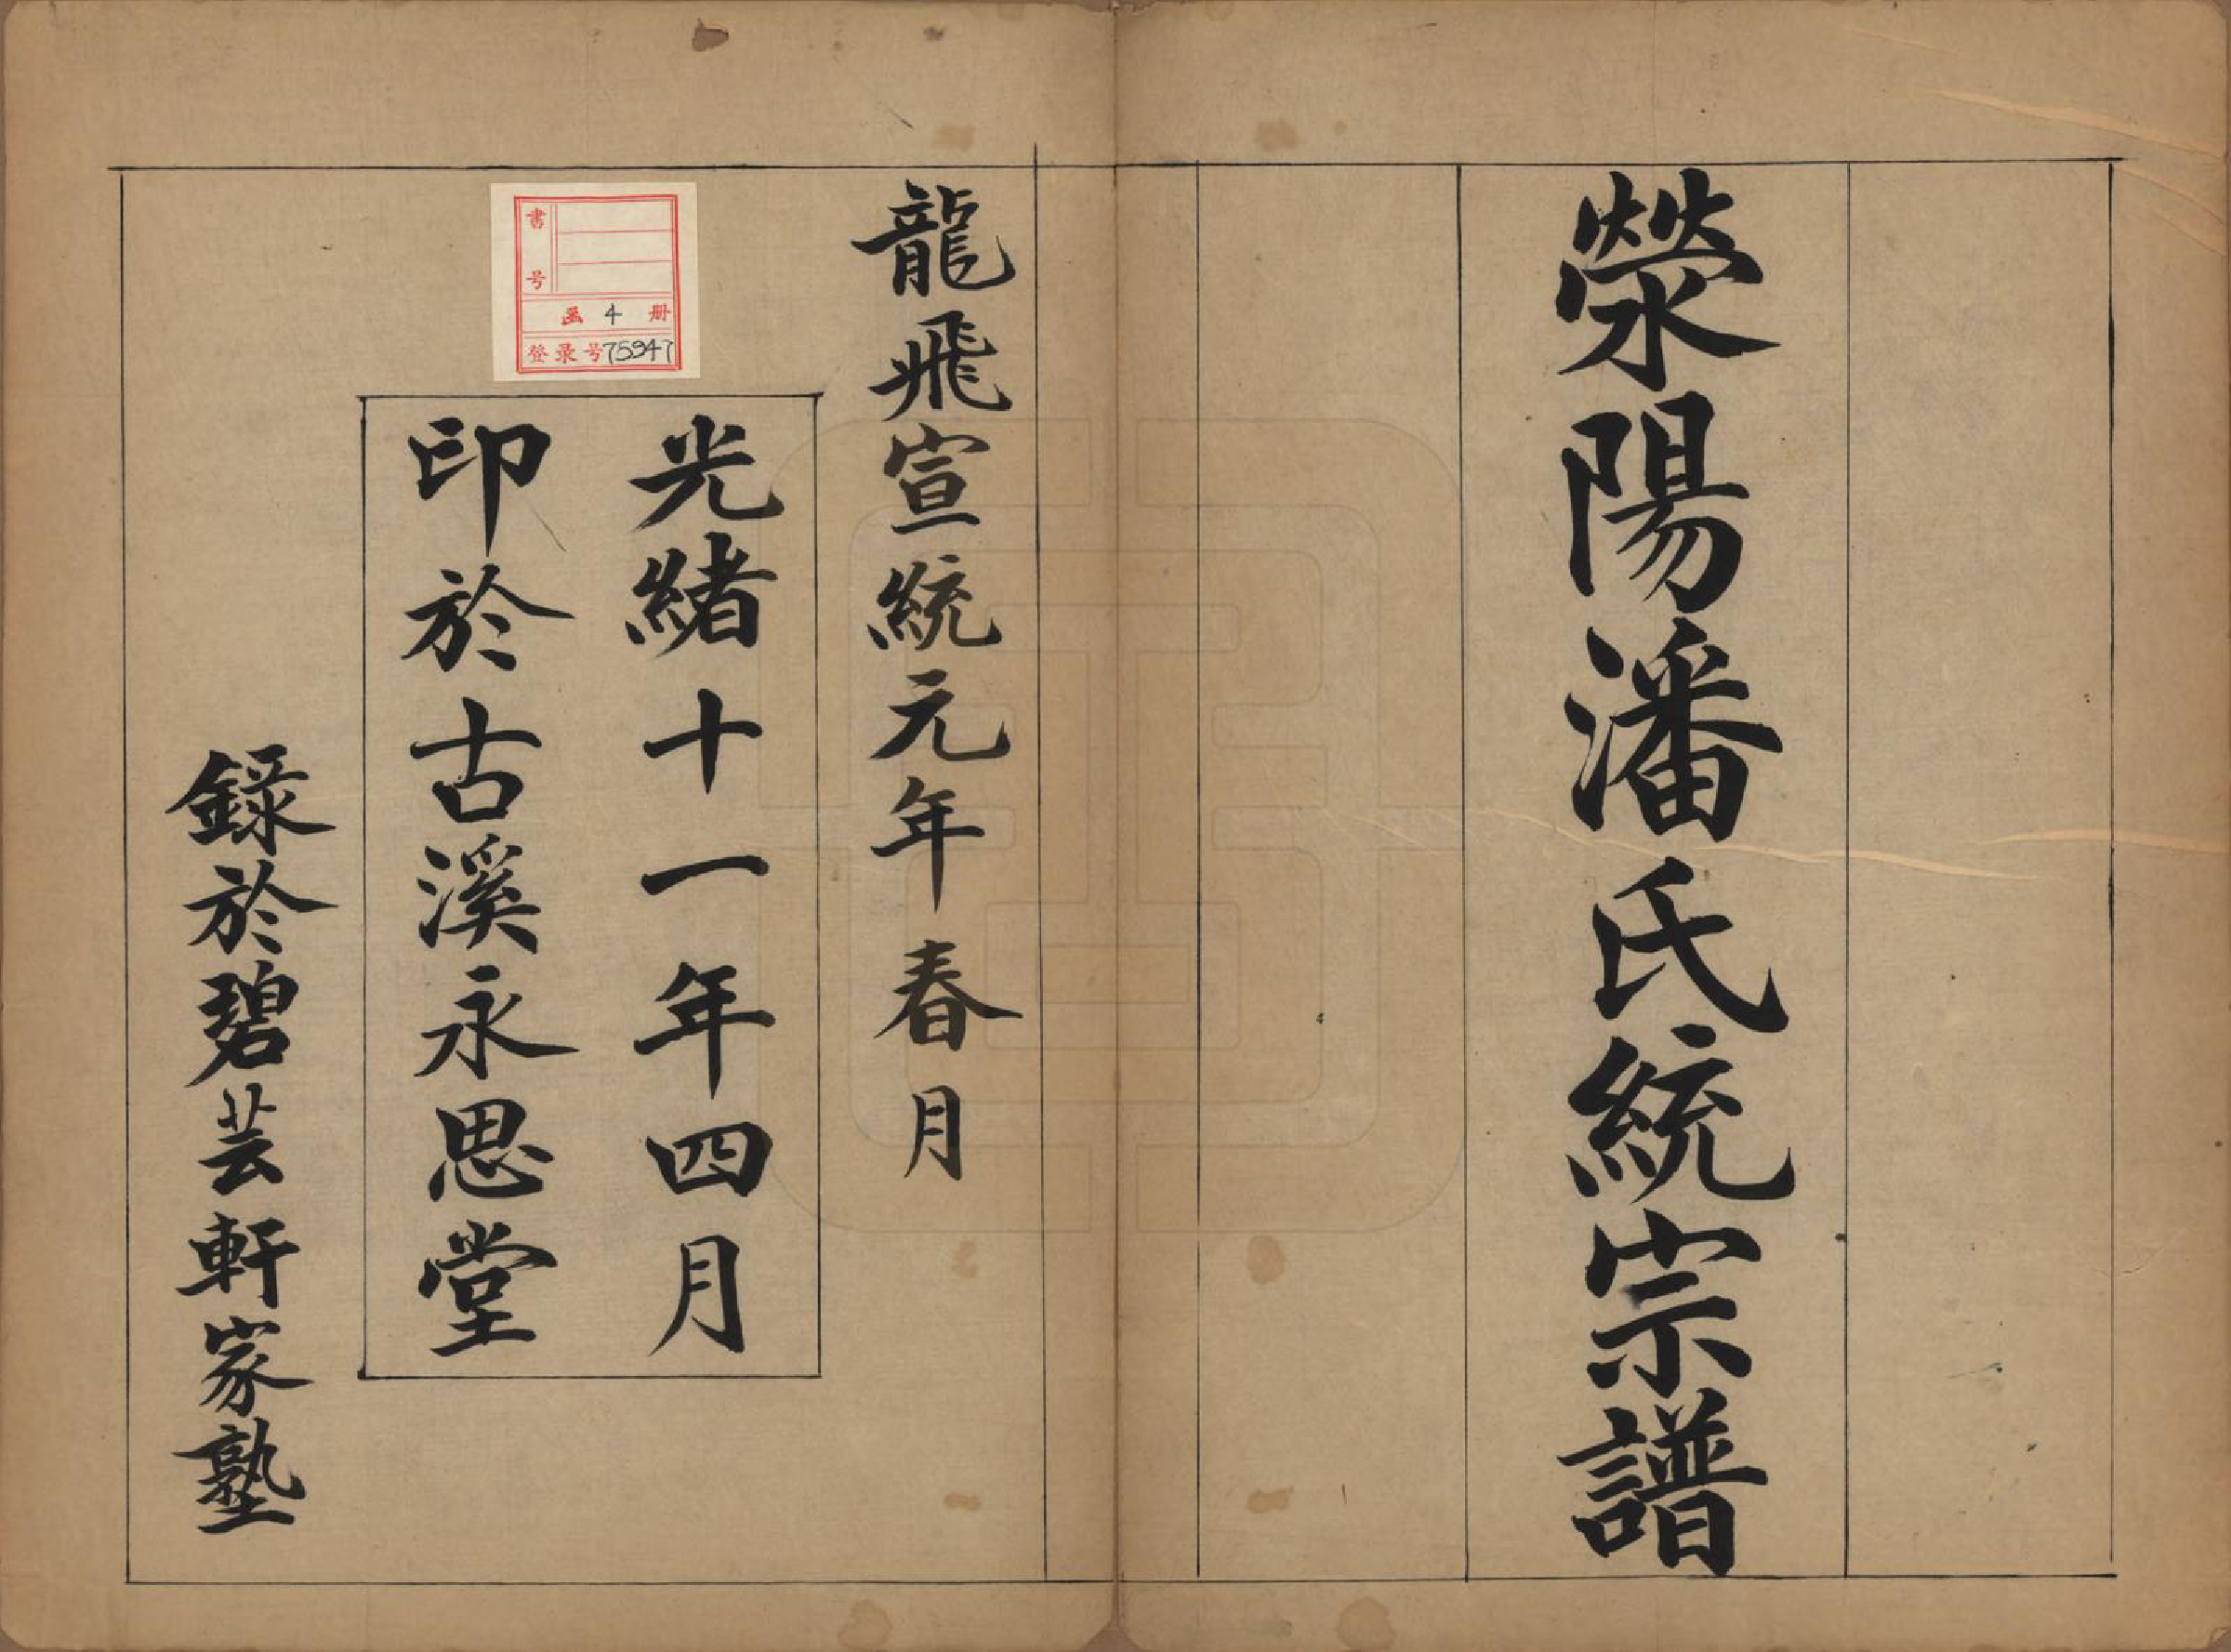 滎陽潘氏統宗譜
龍飛宣統元年春月
光緒十一年四月
印於古溪永思堂
錄於碧芸軒家塾
書号
函 4 册
登录号75947